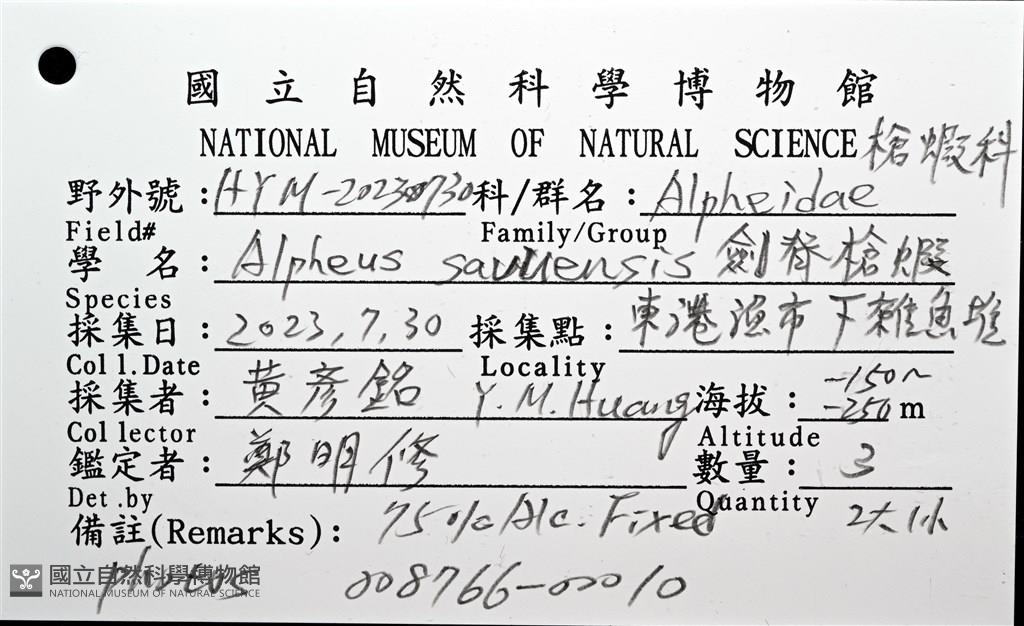 國立自然科學博物館
NATIONAL MUSEUM OF NATURAL SCIENCE 槍蝦科
野外號：HYM-20230730 科/群名：Alpheidae
Field# Family/Group
學 名：Alpheus savuensis 劍脊槍蝦
Species
採集日：2023,7,30 採集點：東港漁市下雜魚堆
Coll.Date Locality
採集者：黃彥銘 Y.M.Huang 海拔：-150~-250m
Collector Altitude
鑑定者：鄭明修 數量：3
Det.by Quantity 2大1小
備註(Remarks)：75% Alc. Fixed
photos 008766-00010
國立自然科學博物館
NATIONAL MUSEUM OF NATURAL SCIENCE